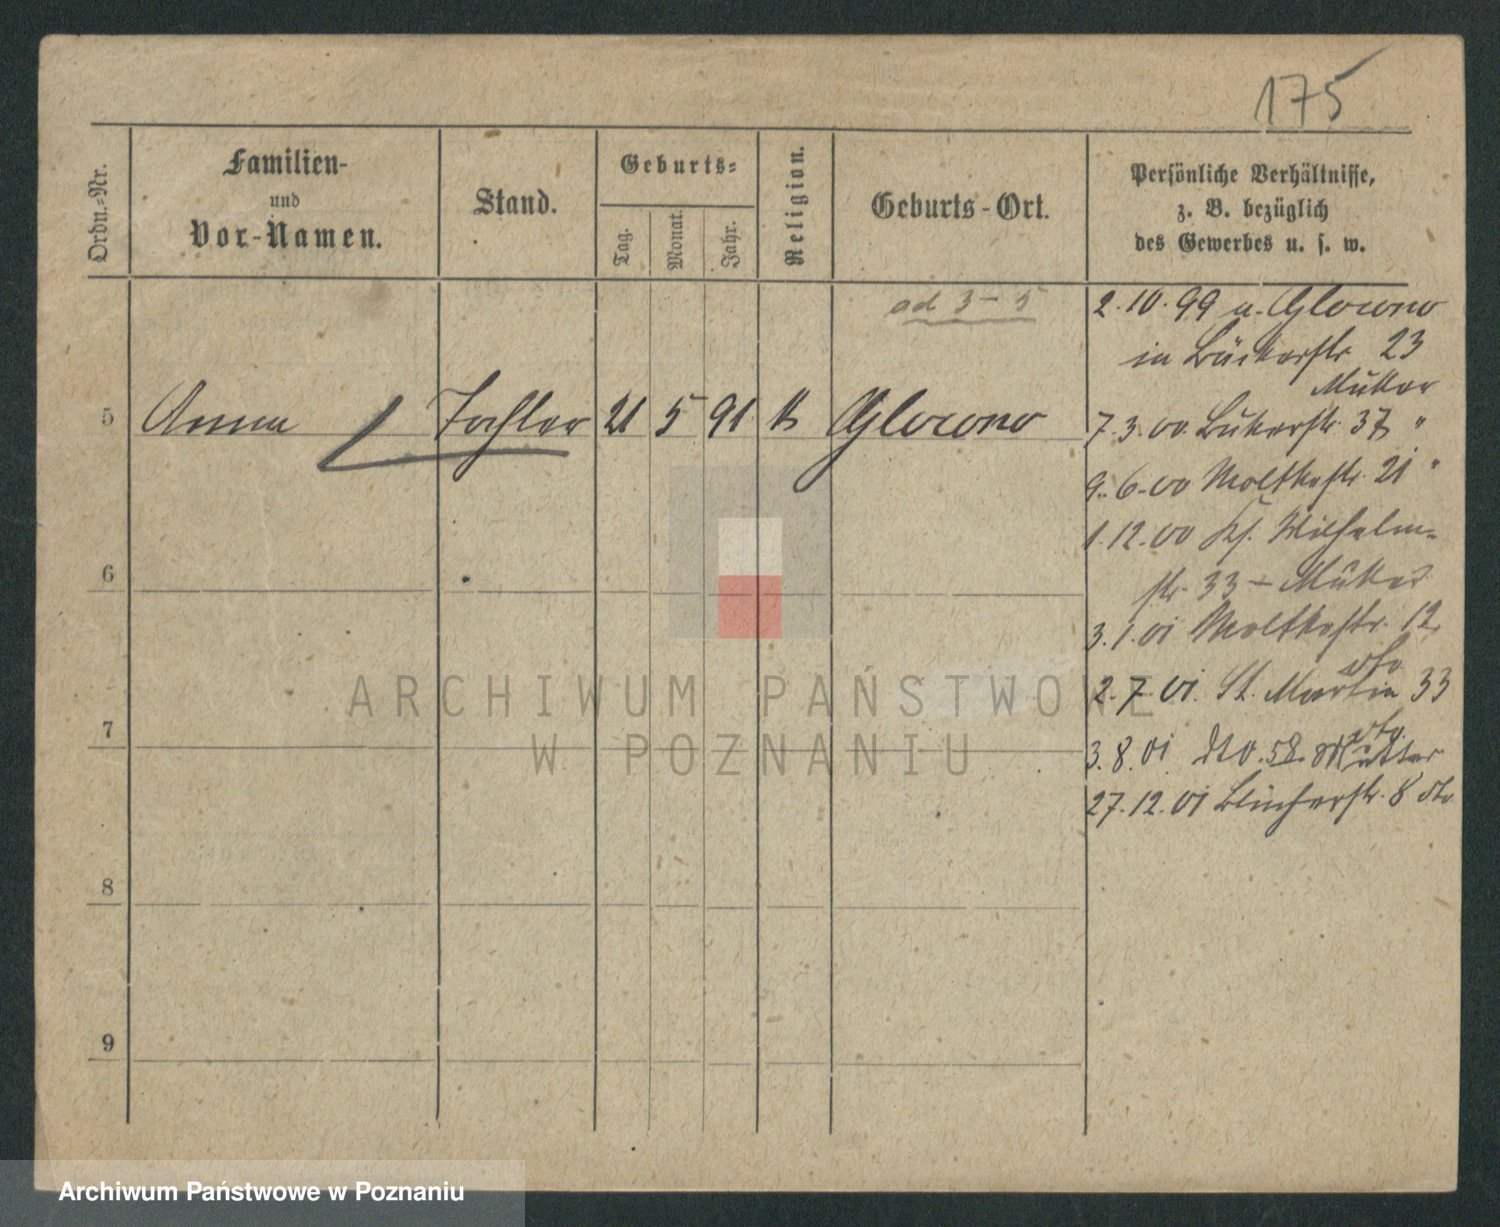 175
Ordn.-Nr.
Familien-
und
Vor-Namen.
Stand.
Geburts-
Tag.
Monat.
Jahr.
Religion.
Geburts-Ort.
Persönliche Verhältnisse,
z. B. bezüglich
des Gewerbes u. s. w.
ad 3-5
2.10.99 a. Glowno
in Bäckerstr. 23
Mutter
5 Anna Tochter 21 5 91 k Glowno
7.3.00 37 "
9.6.00 Moltkestr. 21 "
1.12.00 Wilhelm-
6
str. 33 - Mutter
3.1.01 Moltkestr. 12
dto
2.7.01. St. Martin 33
dto
7
3.8.01 dto. 58. Mutter
27.12.01 Blücherstr. 8 dto
8
9
ARCHIWUM PAŃSTWOWE
W POZNANIU
Archiwum Państwowe w Poznaniu